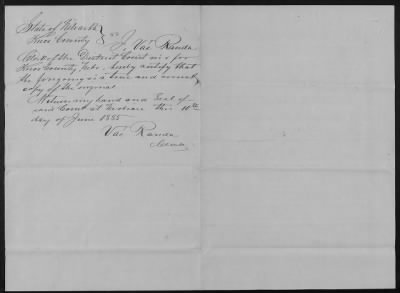 State of Nebraska
Knox County } ss I, Vac Randa
Clerk of the District Court in & for
Knox County Nebr. hereby certify that
the foregoing is a true and correct
copy of the original
Witness my hand and Seal of
said Court at Niobrara this 10th
day of June 1885
Vac Randa
Clerk